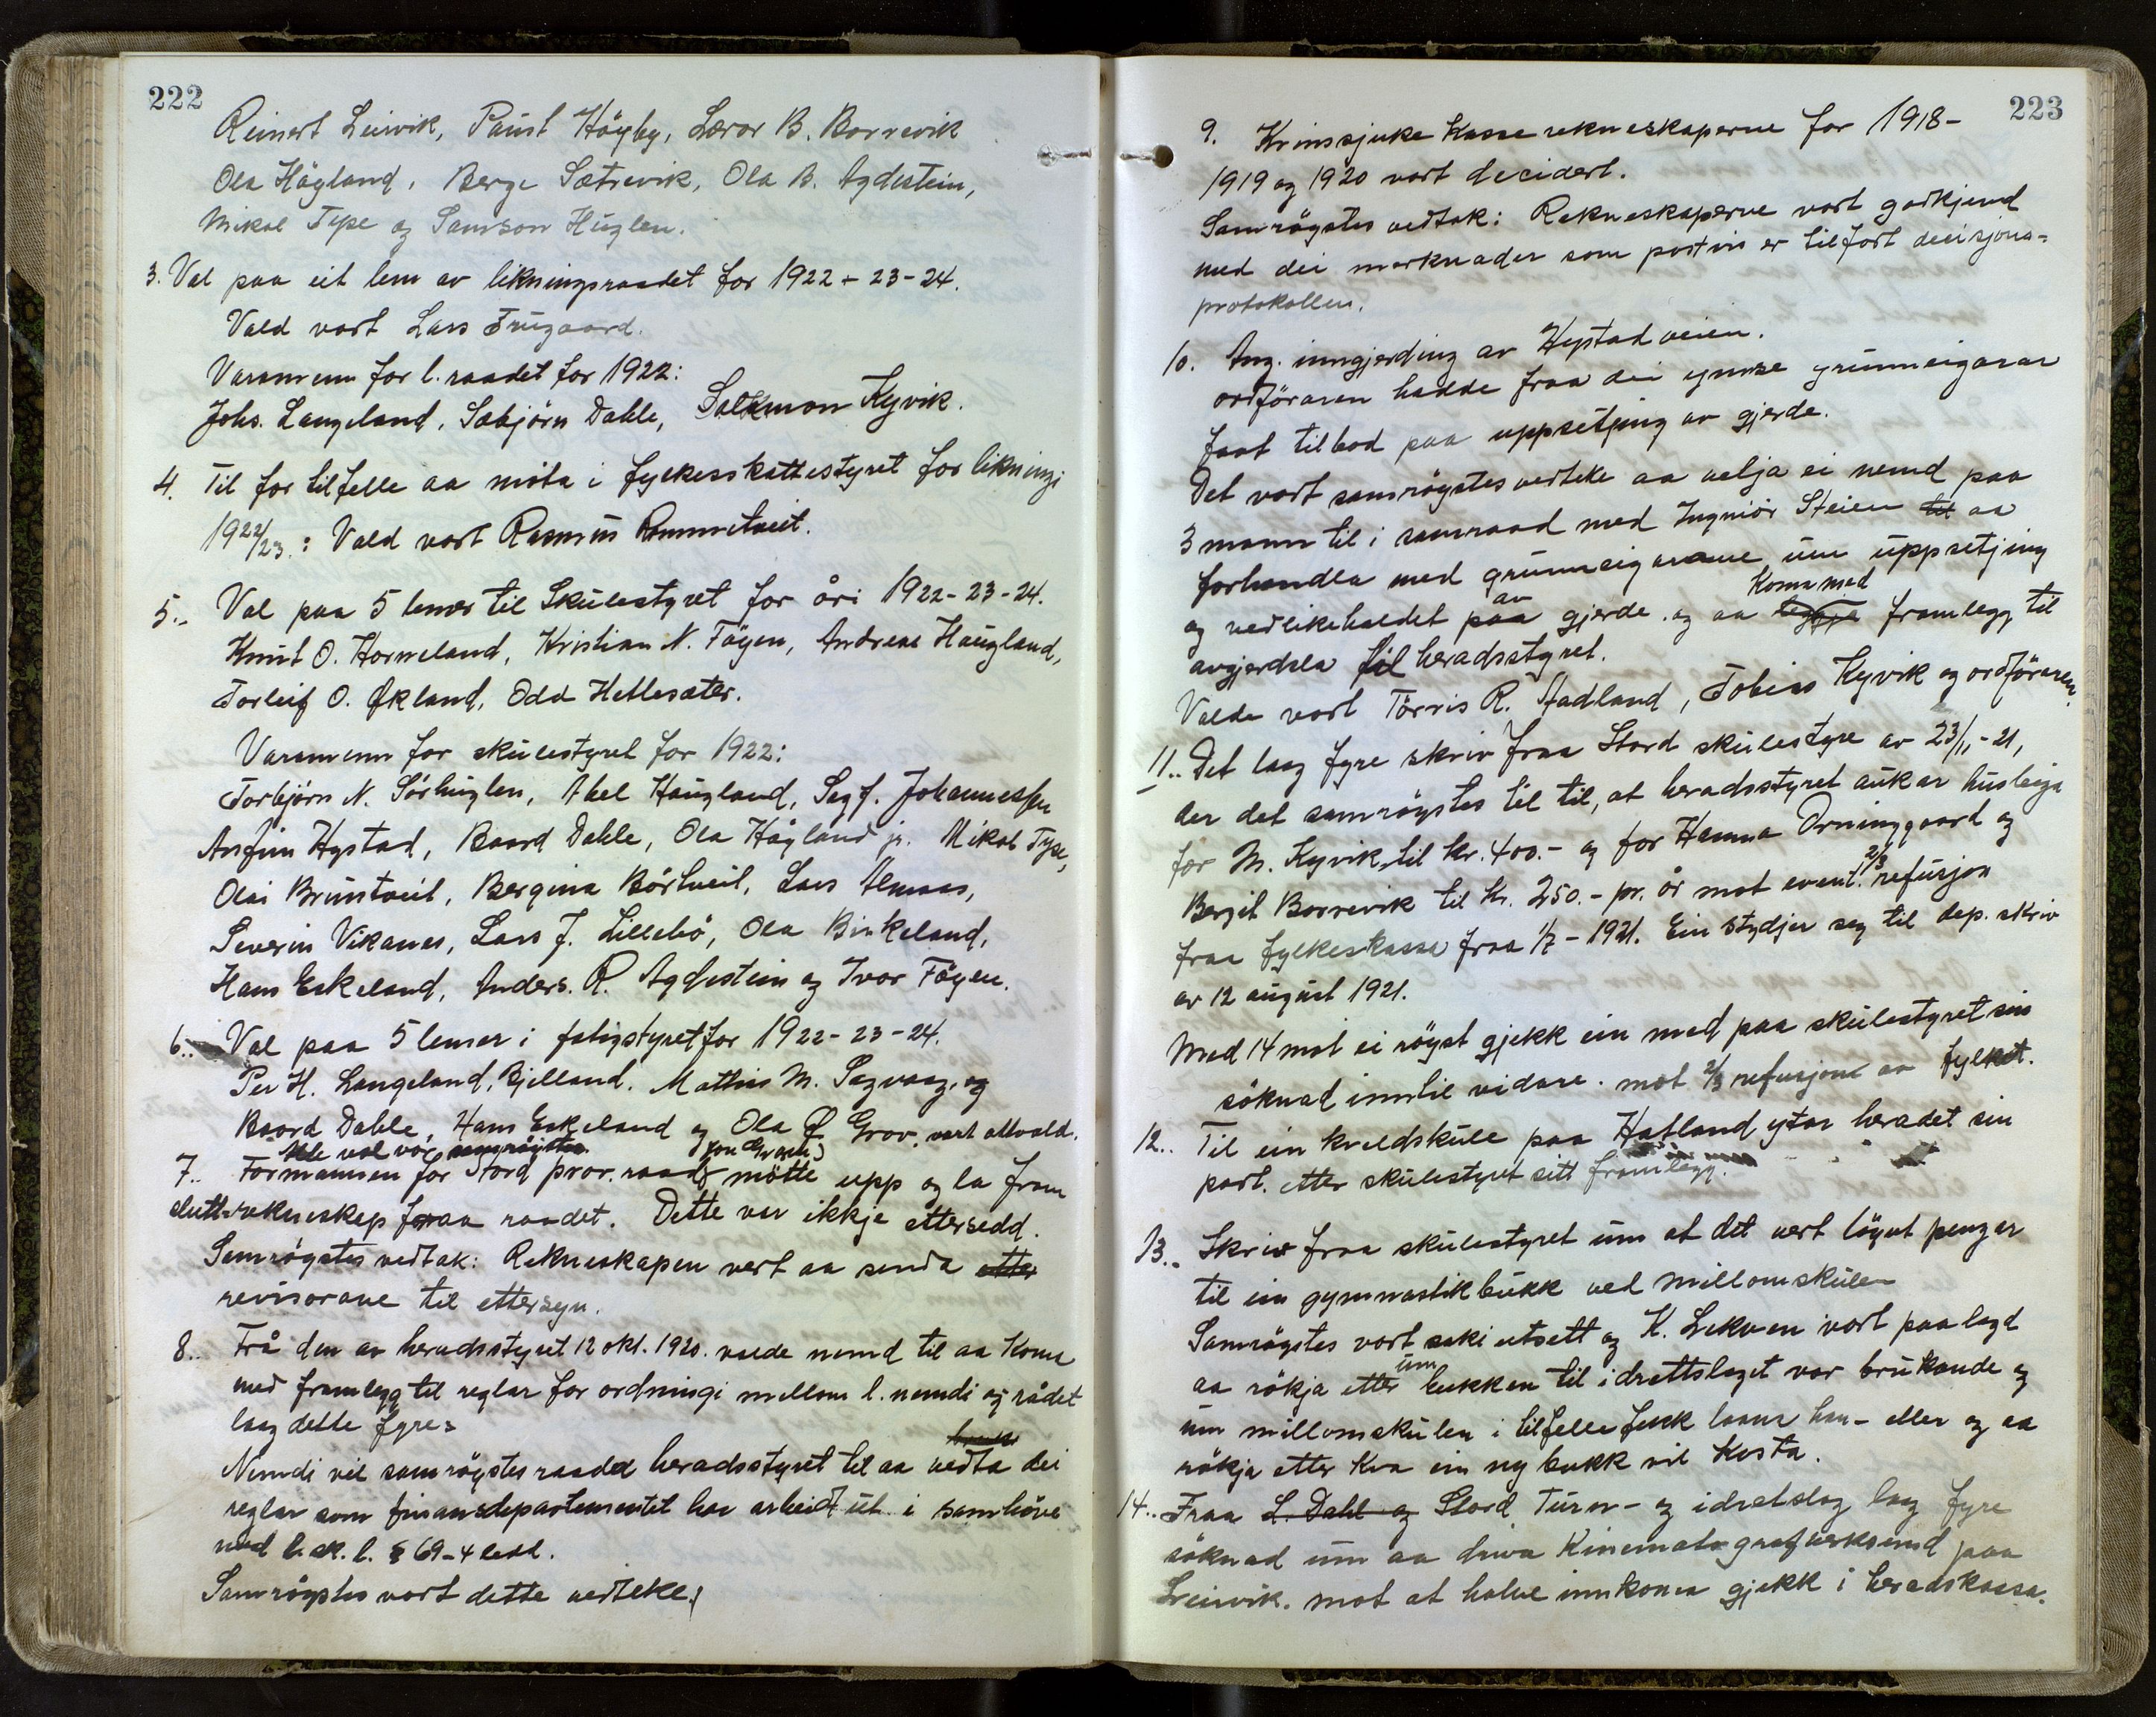 222
Reinert Leirvik, Paust Höyby, Lærar B. Borrevik
Ola Högland, Berge Sætrevik, Ola B. Agdestein,
Mikal Tyse og Samson Huglen.
3. Val paa eit lem av likningsraadet for 1922 - 23 - 24.
Vald vart Lars Trygaard.
Varamenn for l. raadet for 1922:
Johs. Langeland, Sæbjörn Dahle, Salomon Kyvik.
4. Til for tilfelle aa möta i fylkesskattestyret for likningi
1922/23.: Vald vart Rasmus Rommetveit.
5.. Val paa 5 lemer til Skulestyret for åri 1922 - 23 - 24.
Knut O. Horneland, Kristian N. Föyen, Andreas Haugland,
Torleif O. Økland, Odd Hellesæter.
Varamenn for skulestyret for 1922:
Torbjörn N. Sörhuglen, Abel Haugland, Sigf. Johannessen
Anfinn Hystad, Baard Dahle, Ola Högland jr. Mikal Tyse,
Olai Bruntveit, Bergina Börtveit, Lars Almaas,
Severin Vikanes, Lars J. Lillebö, Ola Birkeland,
Hans Eskeland, Anders. R. Agdestein og Ivar Föyen.
6.. Val paa 5 lemer i fatigstyret for 1922 - 23 - 24.
Per H. Langeland, Bjelland. Mathis M. Sagvaag, og
Baard Dahle, Hans Eskeland og Ola Ø. Grov. vart attvald.
Alle val var samröystes.
7.. Formannen for Stord prov. raad (Jon Grov) mötte upp og la fram
slutt-rekneskap fraa raadet. Dette var ikkje ettersedd.
Samröystes vedtak: Rekneskapen vert aa senda etter
revisorane til ettersyn.
8.. Frå den av heradsstyret 12 okt. 1920. valde nemd til aa koma
med framlegg til reglar for ordningi millom l. nemdi og rådet
laag dette fyre:
Nemdi vil samröystes raada heradsstyret til aa vedta dei
reglar som finansdepartementet har arbeidt ut i samhöve
med b. sk. l. § 69 - 4 ledd.
Samröystes vart dette vedteke.
223
9. Krinssjukekasserekneskaperne for 1918 -
1919 og 1920 vart decidert.
Samröystes vedtak: Rekneskaperne vart godkjend
med dei merknader som postvis er tilfört decisjons=
protokollen.
10. Ang. inngjerding av Hystadveien.
ordföraren hadde fraa dei ymse grunneigarar
faat tilbod paa uppsetjing av gjerde.
Det vart samröystes vedteke aa velja ei nemd paa
3 mann til i samraad med Ingniör Steien til aa
forhandla med grunneigarane um uppsetjing
og vedlikehaldet paa av gjerde. og aa leggja koma med framlegg til
avgjerdsla fil heradsstyret.
Valde vart Törris R. Stadland, Tobias Kyvik og ordföraren.
11.. Det laag fyre skriv fraa Stord skulestyre av 23/11 - 21,
der det samröystes til til, at heradsstyret aukar husleiga
for M. Kyvik til kr. 400.- og for Hanna Orninggaard og
Bergit Borrevik til kr. 250.- pr. år mot event. 2/3 refusjon
fraa fylkeskassa fraa 1/7 - 1921. Ein stydjer seg til dep. skriv
av 12 august 1921.
Med 14 mot ei röyst gjekk ein med paa skulestyret sin
söknad inntil vidare. mot 2/3 refusjon av fylket.
12.. Til ein kveldskule paa Hatland ytar heradet sin
part. etter skulestyret sitt framlegg.
13.. Skriv fraa skulestyret um at det vert löyvt pengar
til ein gymnastikbukk ved millomskulen
Samröystes vart saki utsett og K. Lekven vart paalagd
aa rökja etter um bukken til idrettslaget var brukande og
um millomskulen i tilfelle fekk laana han - eller og aa
rökja etter kva ein ny bukk vil kosta.
14.. Fraa L. Dahl og Stord Turn- og idretslag laag fyre
söknad um aa driva Kinematografverksemd paa
Leirvik. mot at halve innkoma gjekk i heradskassa.